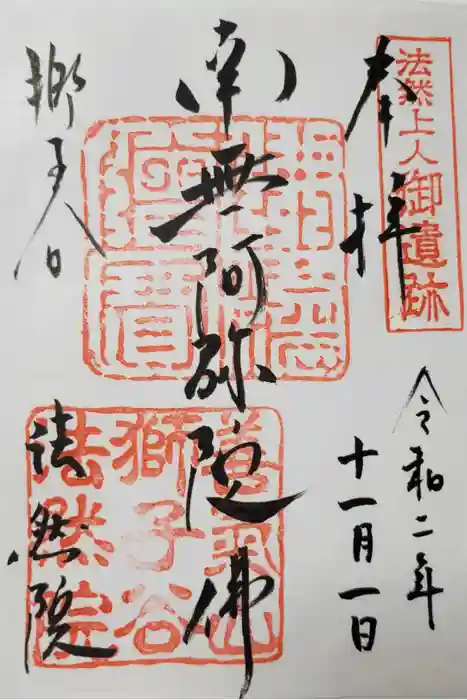 法然上人御遺跡
奉拝
令和二年
十一月一日
南無阿弥陀佛
獅子谷
法然院
善氣山
獅子谷
法然院